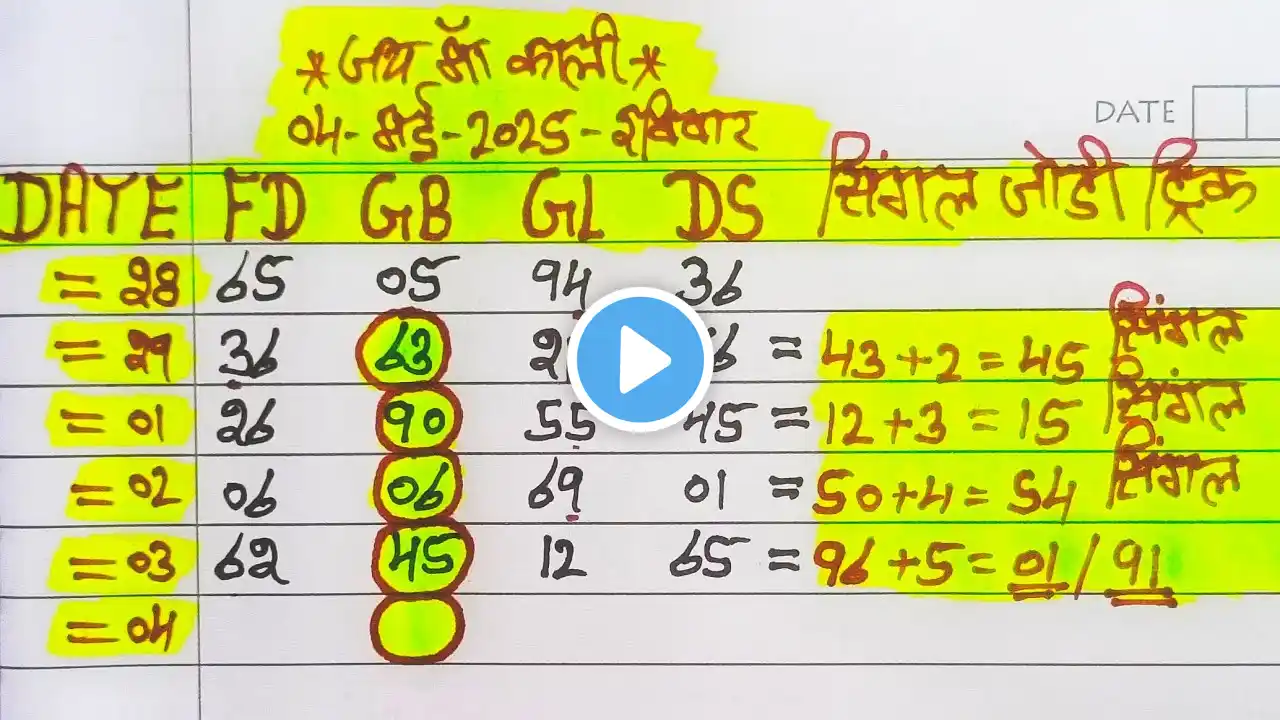 *जय माँ काली*
04-मई-2025-रविवार
DATE
DAYE FD GB GL DS सिंगल जोडी ट्रिक
= 28 65 05 94 36
= 29 36 63 = 43+2 = 45 सिंगल
= 01 26 90 55 45 = 12+3 = 15 सिंगल
= 02 06 06 69 01 = 50+4 = 54 सिंगल
= 03 62 45 12 65 = 96+5 = 01/91
= 04